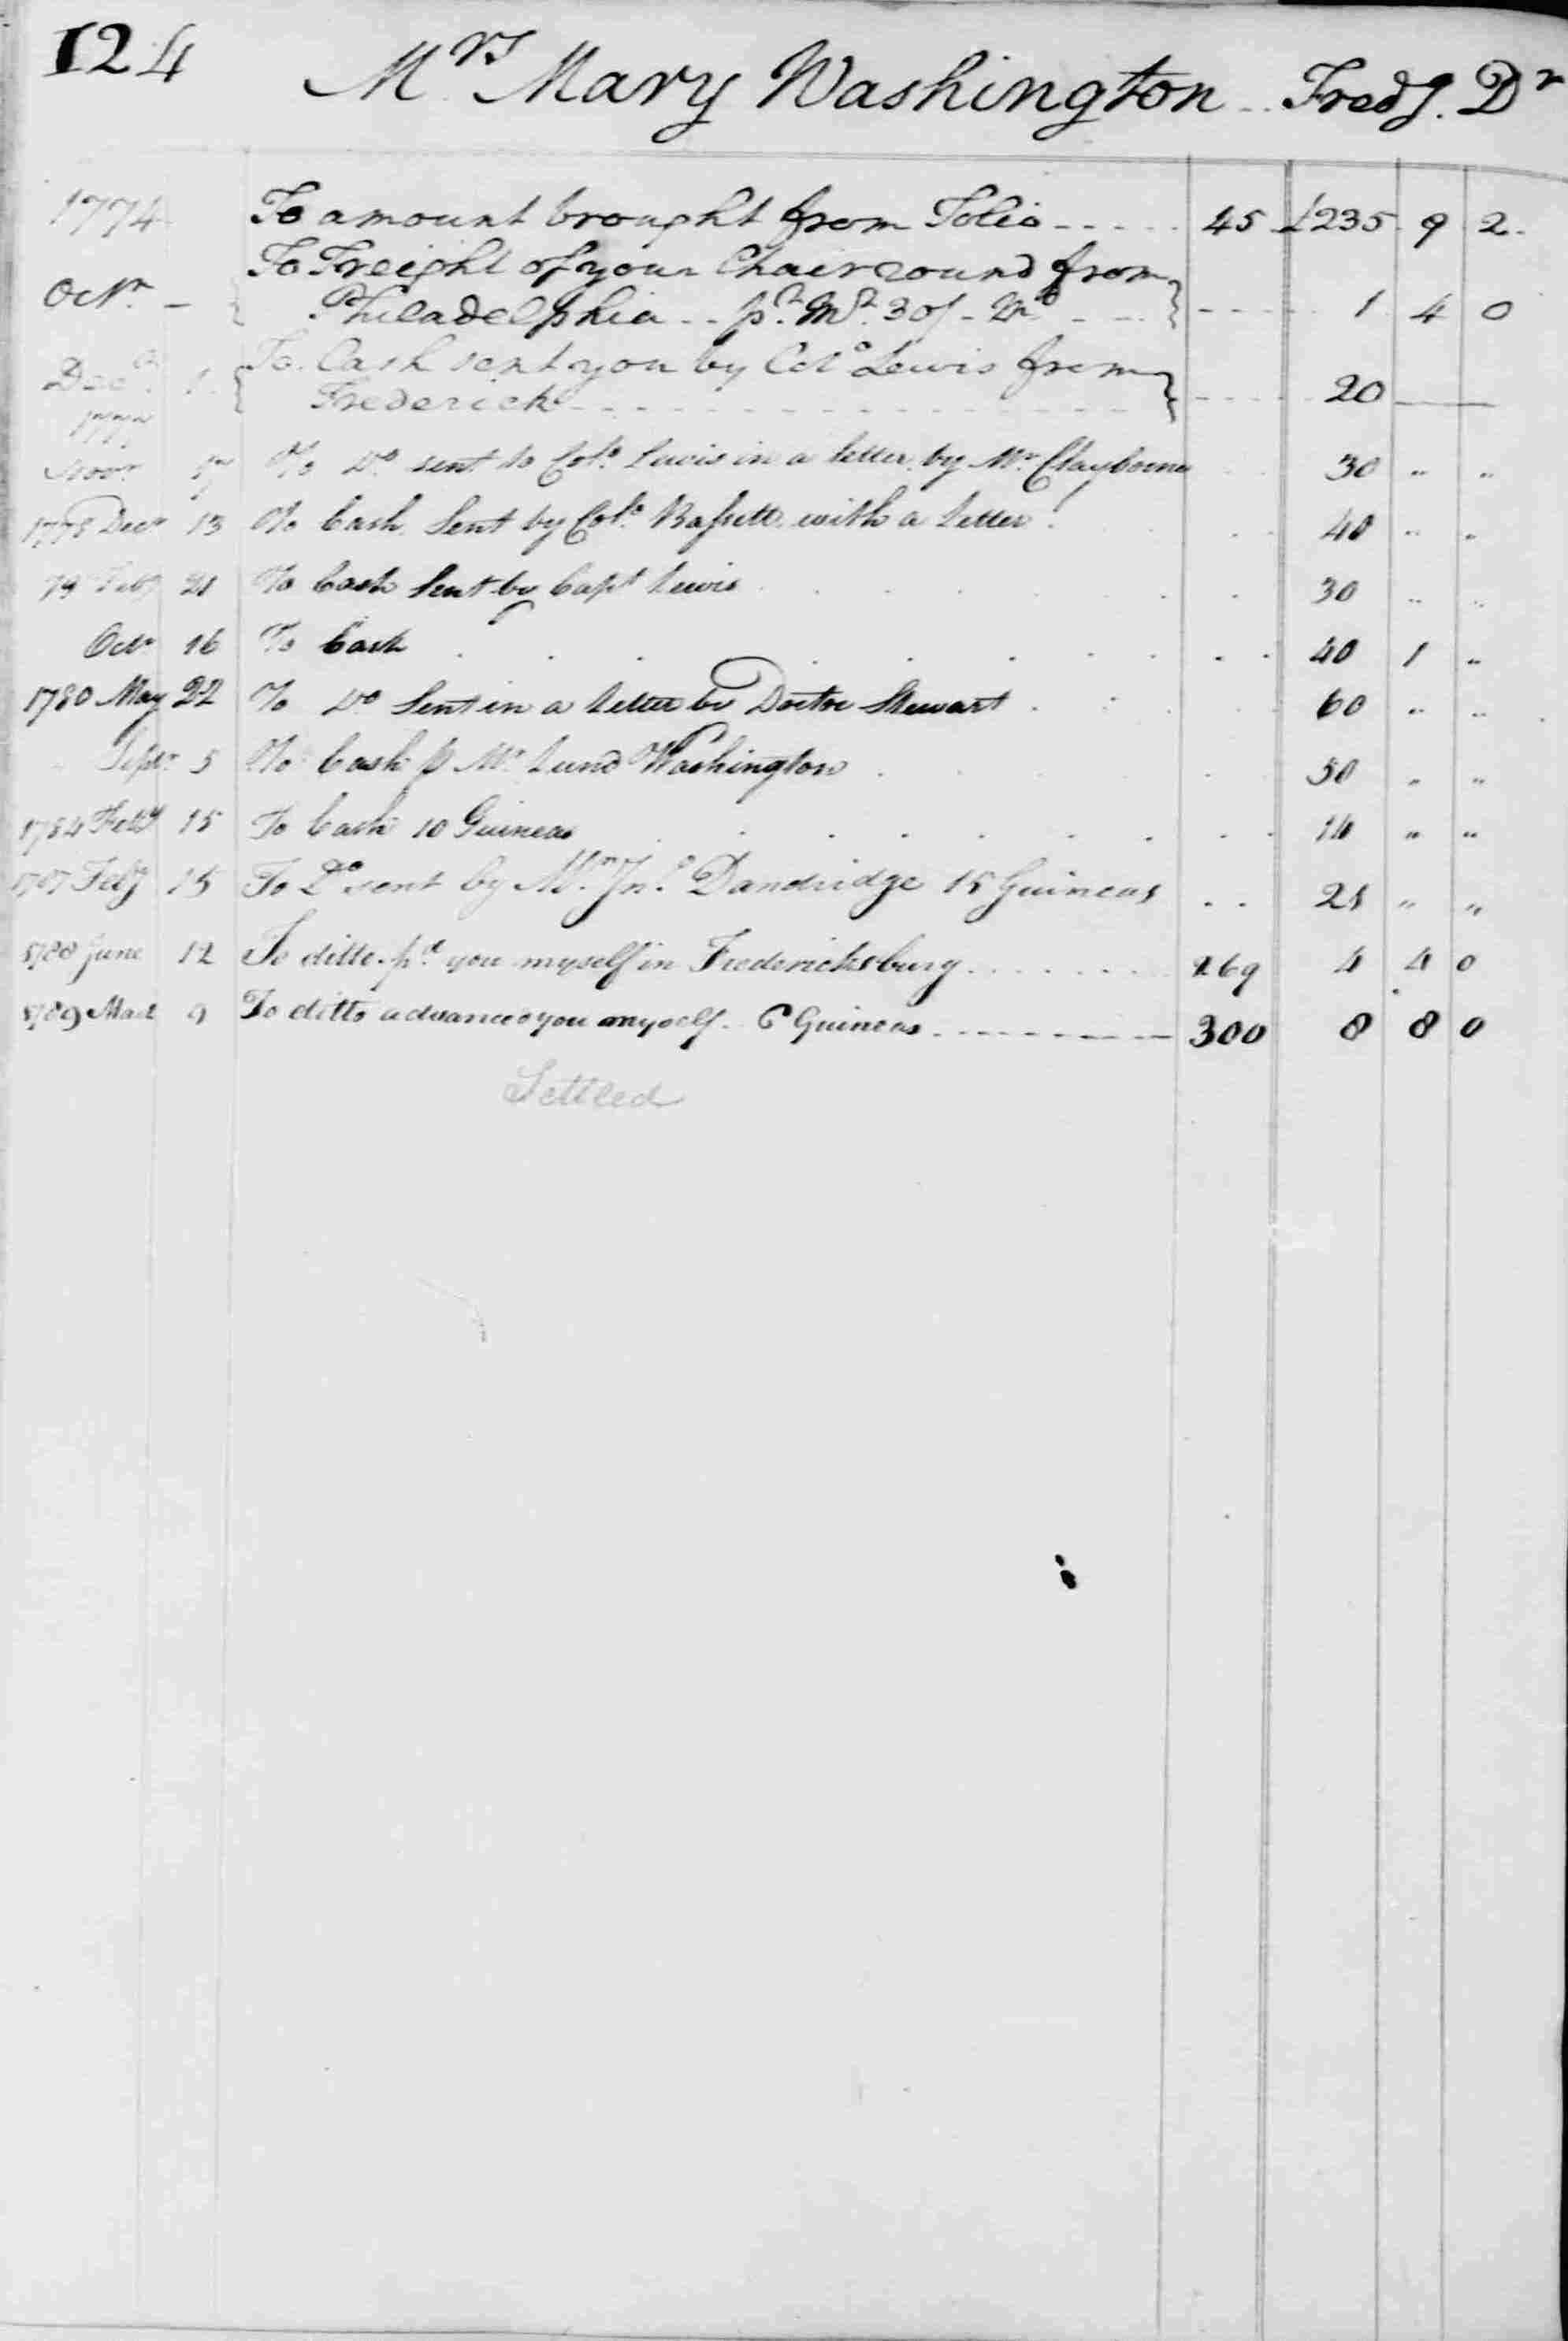 124
Mrs Mary Washington .. Fredg. Dr
1774 To amount brought from Folio ----- 45 £235 9 2.
Octr. – To Freight of your Chair round from
Philadelphia .. pr. 30/ ---- 1 4 0
Decr. 1. To Cash sent you by Colo Lewis from
Frederick ---- 20 ——
1777
Novr To Do. sent to Colo. Lewis in a letter by Mr Clayborne 30 " "
1778 Decr 13 To Cash Sent by Colo. Bassett with a Letter. 40 " "
79 Feby 21 To Cash Sent by Capt Lewis 30 " "
Octr 16 To Cash 40 1 "
1780 May 22 To Do Sent in a Letter by Doctor Stewart 60 " "
Septr 5 To Cash p Mr Lund Washington 50 " "
1784 Feby 15 To Cash 10 Guineas 14 " "
1787 Feby 15 To Do sent by Mr. Jno. Dandridge 15 Guineas 21 " "
1788 June 12 To ditto pd you myself in Fredericksburg 269 4 4 0
1789 March 9 To ditto advanced you myself .. 6 Guineas 300 8 8 0
Settled